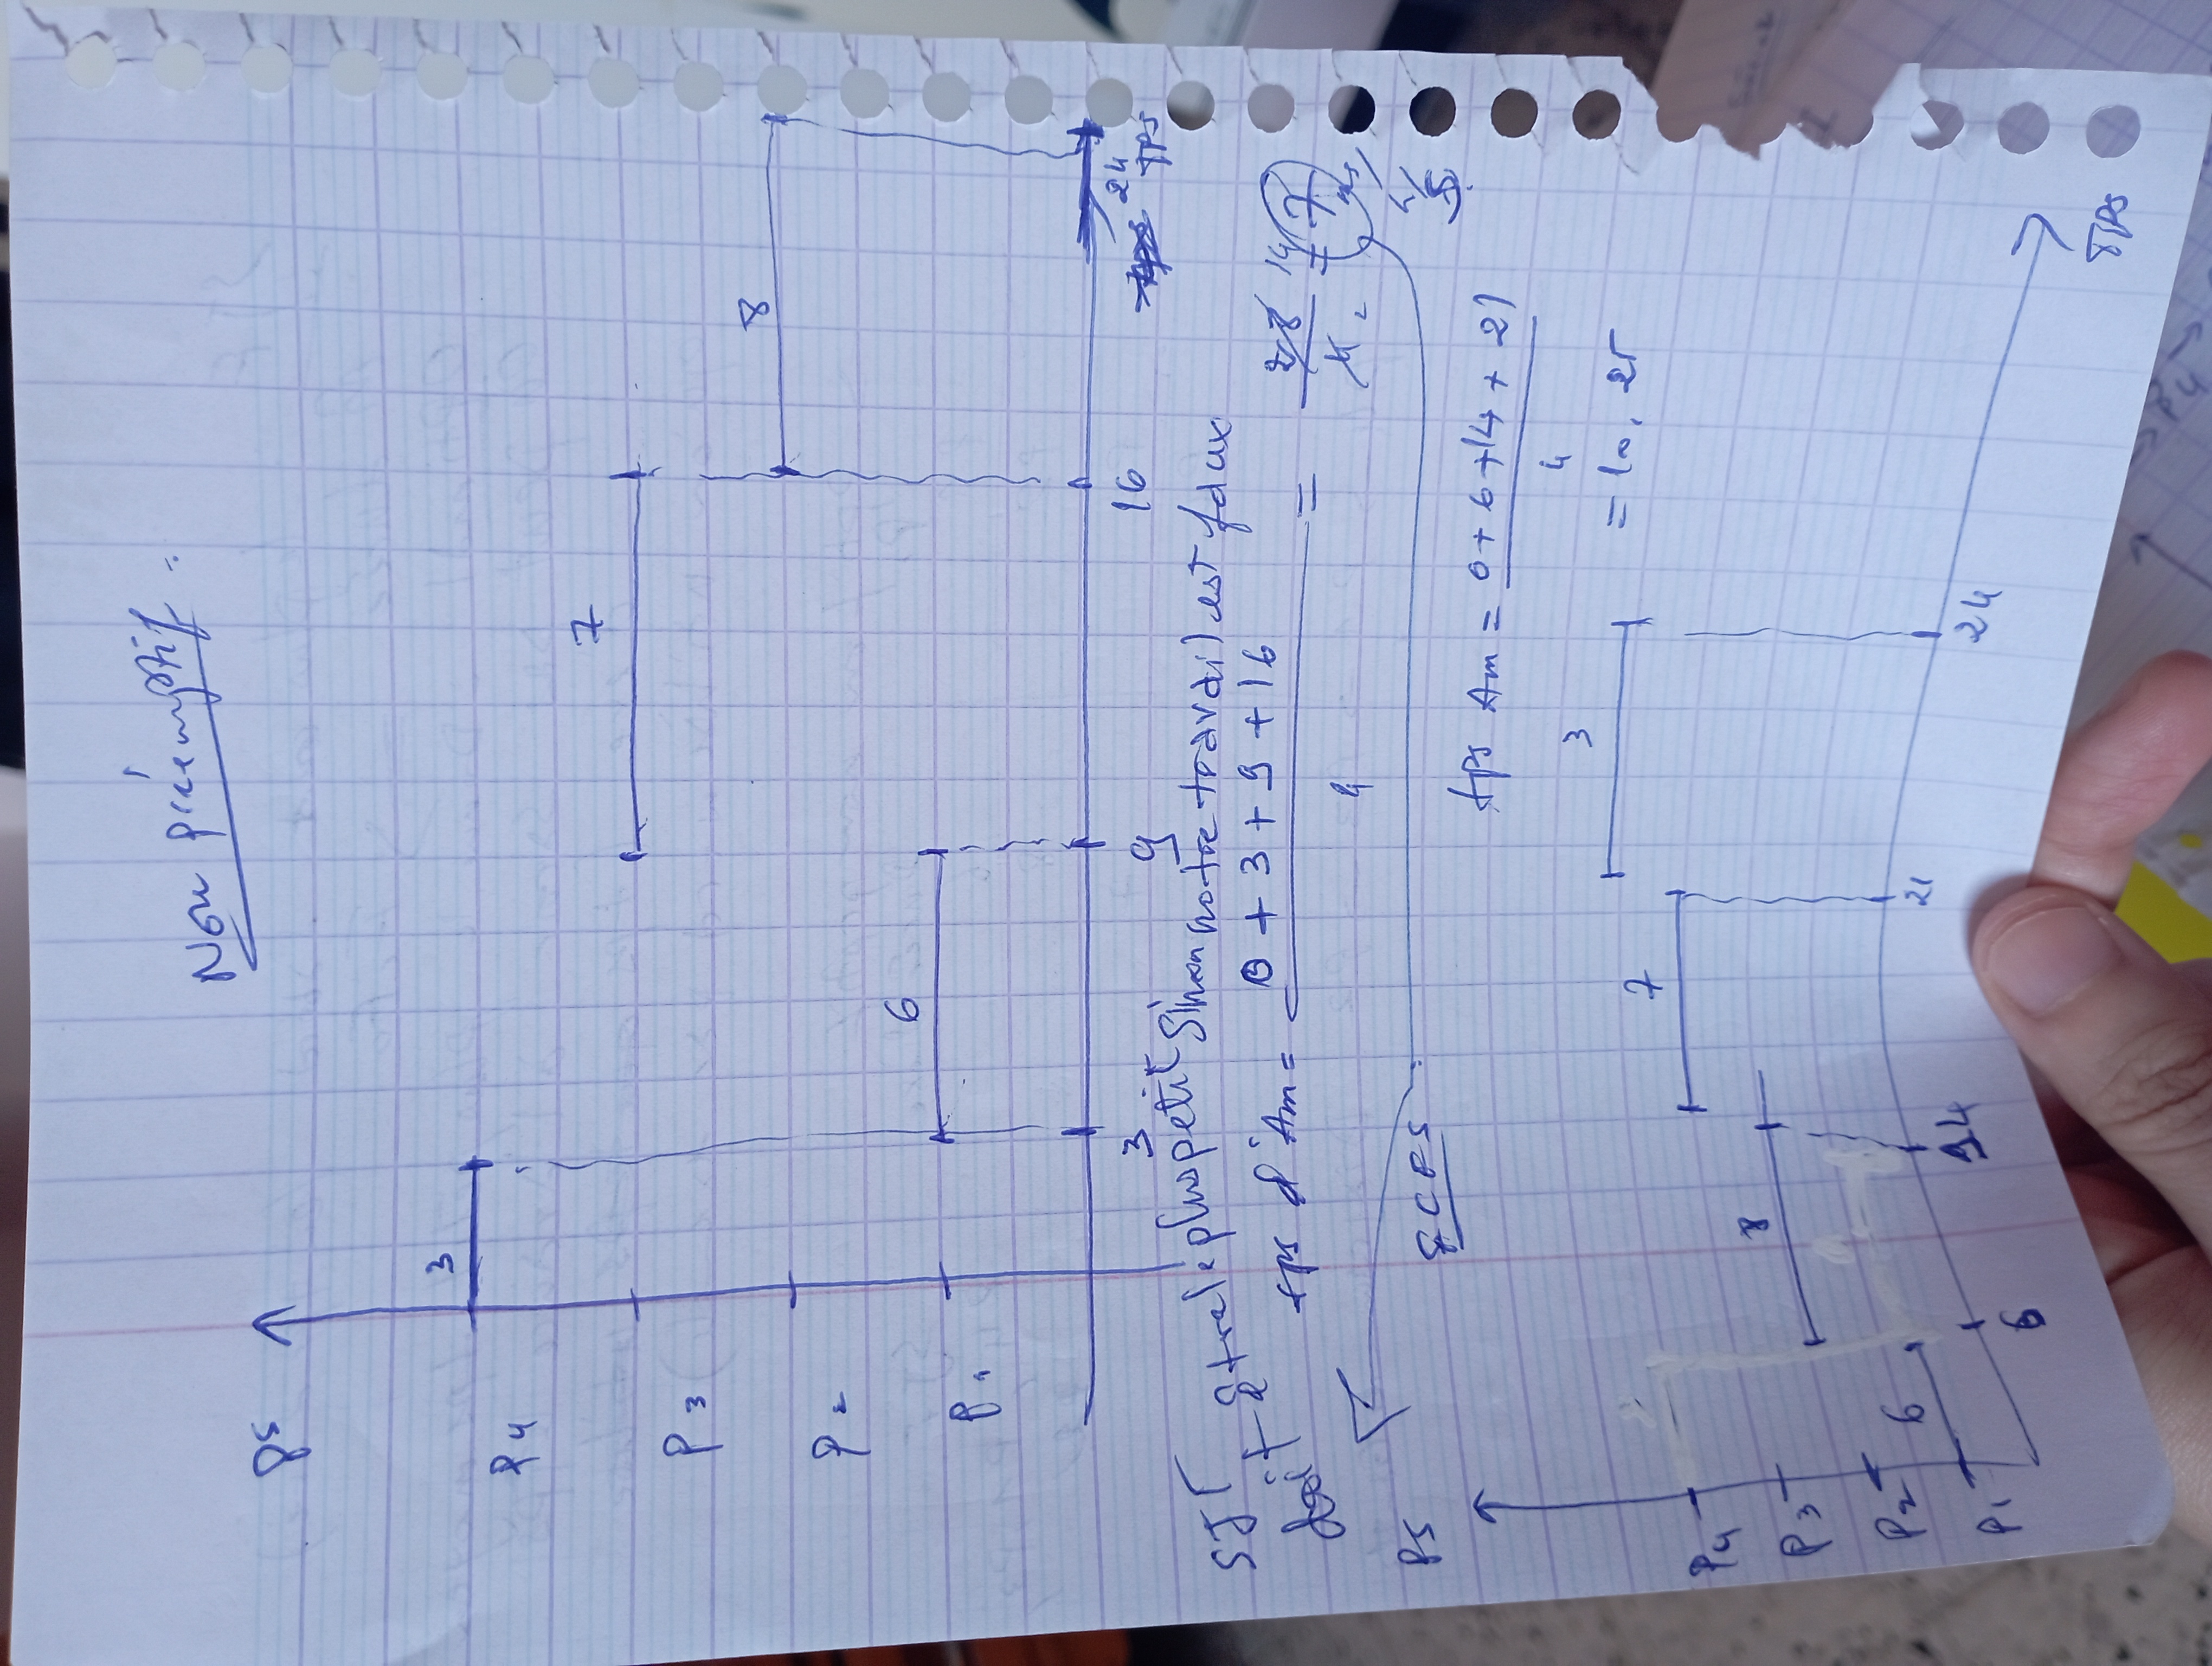 Non préemptif.
Ps
3
P4
7
P3
8
P2
6
P1
3
9
16
24
TPS
SJF
doit être le plus petit Sinon notre travail est faux
tps d'Am = 0 + 3 + 9 + 16 / 4 = 28 / 4 2 14 = 7 ms
Ps
FCFS
tps Am = 0 + 6 + 14 + 21 / 4
= 10,25
3
7
P4
8
P3
P2
6
P1
6
14
21
24
TPS
P4